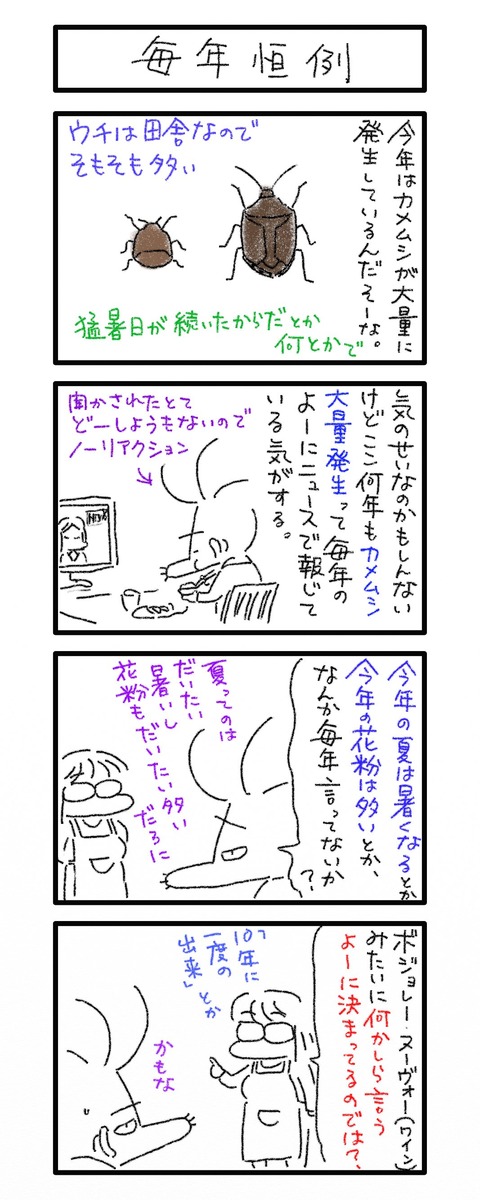 毎年恒例
今年はカメムシが大量に
発生しているんだそーな。
ウチは田舎なので
そもそも多い
猛暑日が続いたからだとか
何とかで
気のせいなのかもしんない
けどここ何年もカメムシ
大量発生って毎年の
よーにニュースで報じて
いる気がする。
聞かされたとて
どーしようもないので
ノーリアクション
今年の夏は暑くなるとか
今年の花粉は多いとか、
なんか毎年言ってないか?
夏ってのは
だいたい
暑いし
花粉もだいたい多い
だろに
ボジョレー・ヌーヴォー(ワイン)
みたいに何かしら言う
よーに決まってるのでは?、
「10年に
一度の
出来」とか
かもな